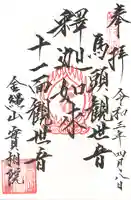 奉拝
令和二年四月八日
馬頭観世音
釋迦如来
十一面観世音
金縄山 實相院